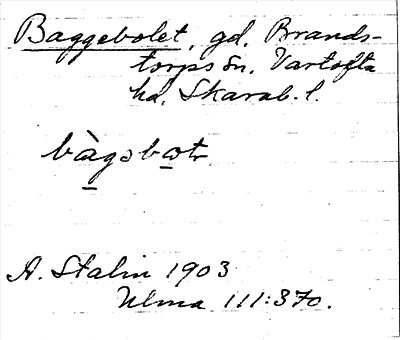 Baggebolet, gd. Brands-
torps sn. Vartofta
hd. Skarab. l.
A. Stalin 1903
Ulma 111:370.